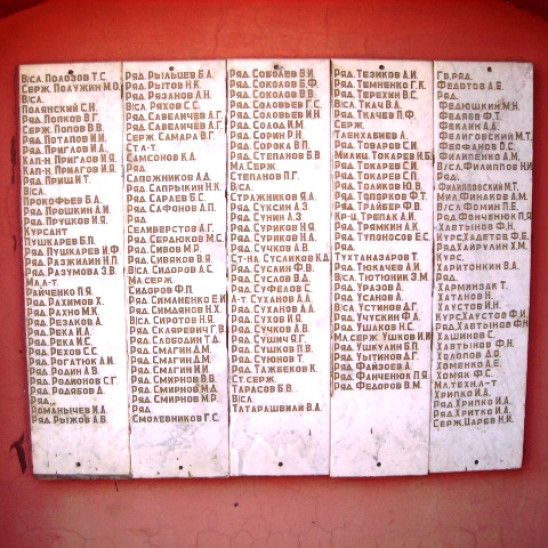 В\сл. Полозов Т.С.
Серж. Полужин М.О.
В\сл.
Полянский С.Н.
Ряд. Попков В.Г.
Серж. Попов В.В.
Ряд. Потапов И.М.
Ряд. Приглов И.А.
Кап-н. Приглов И.Я.
Кап-н. Прилгов И.Я.
Ряд. Прищ И.Т.
В\сл.
Прокофьев Б.А.
Ряд. Прошкин А.И.
Ряд. Прушков И.Я.
Курсант
Пушкарев Б.П.
Ряд. Пушкарев И.Ф.
Ряд. Разжилин Н.П.
Ряд. Разумова З.В.
Мл.л-т.
Райченко П.Я.
Ряд. Рахимов Х.
Ряд. Рахно М.К.
Ряд. Резаков А.
Ряд. Река И.А.
Ряд. Река И.С.
Ряд. Рехов С.С.
Ряд. Рогатюк А.И.
Ряд. Родин А.В.
Ряд. Родионов С.Г.
Ряд. Родявов Д.
Ряд.
Романычев И.А.
Ряд. Рыжов А.В.
Ряд. Рыльцев Б.А.
Ряд. Рытов Н.К.
Ряд. Рязанов А.Н.
В\сл. Ряхов С.С.
Ряд. Савеличев А.Г.
Ряд. Савеличев А.Г.
Серж. Самара В.Г.
Ст.л-т.
Самсонов К.А.
Ряд.
Сапожников А.Д.
Ряд. Сапрыкин Н.К.
Ряд. Сардев Б.С.
Ряд. Сафонов А.П.
Ряд.
Селиверстов А.Г.
Ряд. Сердюков М.С.
Ряд. Сивов М.Р.
Ряд. Сивяков В.Я.
В\сл. Сидоров А.С.
Мл.серж.
Сидоров Ф.П.
Ряд. Симаненко Е.И.
Ряд. Симдянов Н.Х.
В\сл. Сиротов Н.Я.
Ряд. Скляревич Г.В.
Ряд. Слободин Т.Д.
Ряд. Смагин Д.М.
Ряд. Смагин Д.М.
Ряд. Смагин И.И.
Ряд. Смирнов В.В.
Ряд. Смирнов М.Д.
Ряд. Смирнов М.Р.
Ряд.
Смолевников Г.С.
Ряд. Соболев В.И.
Ряд. Соколов Б.Ф.
Ряд. Соколов В.В.
Ряд. Соловьев Г.С.
Ряд. Соловьев Г.И.
Ряд. Солод И.М.
Ряд. Сорин Р.Н.
Ряд. Сорока В.П.
Ряд. Степанов Б.В.
Мл.Серж.
Степанов П.Г.
В\сл.
Стражников Я.А.
Ряд. Суксин А.З.
Ряд. Сунин А.З.
Ряд. Суриков Н.Я.
Ряд. Суриков Н.А.
Ряд. Сучков А.В.
Ст-на. Сусликов К.Д.
Ряд. Суслин Ф.В.
Ряд. Суслов В.Д.
Ряд. Суфелов С.
Л-т. Суханов А.А.
Ряд. Суханов А.А.
Ряд. Сухов И.Я.
Ряд. Сучков А.В.
Ряд. Сушич Я.Г.
Ряд. Сушков П.В.
Ряд. Сюмонов Т.
Ряд. Тажбеков К.
Ст.серж.
Тарасов Б.В.
В\сл.
Татарашвили В.А.
Ряд. Тезиков А.И.
Ряд. Темненко Г.К.
Ряд. Терехин В.С.
В\сл. Ткач В.А.
Ряд. Ткачев П.Ф.
Серж.
Тленхабиев А.
Ряд. Товаров С.И.
Милиц. Токарев Н.Б.
Ряд. Токарев С.И.
Ряд. Токарев С.П.
Ряд. Толиков Ю.В.
Ряд. Топорков Ф.Т.
Ряд. Трайвер Ф.В.
Кр-ц. Трепак А.И.
Ряд. Трямкин А.К.
Ряд. Тупоносов Е.С.
Ряд.
Тухтаназаров Т.
Ряд. Тюкачев А.И.
В\сл. Тютюник З.М.
Ряд. Уразов А.
Ряд. Усанов А.
В\сл. Устинов Д.Г.
Ряд. Учускин Ф.А.
Ряд. Ушаков Н.С.
Мл.серж. Ушков И.И.
Ряд. Ушкулин Б.П.
Ряд. Уытинов Д.Г.
Ряд. Файзоев А.
Ряд. Фанченюк П.Я.
Ряд. Федоров В.М.
Гв.ряд.
Федотов А.Е.
Ряд.
Федюшкин М.Н.
Федяев Ф.Т.
Феклин А.А.
Фелиговский М.Т.
Феофанов О.С.
Филипенко А.М.
В\сл. Филиппов Н.И.
Ряд.
Филипповский М.Т.
Мил. Финаков А.М.
В\сл. Фомин П.Е.
Ряд. Фонченюк П.Я.
Хавтынов Ф.Н.
Курс. Хадетов Ф.Б.
Ряд. Хайрулин Х.М.
Курс.
Харитонкин В.А.
Ряд.
Харминзак Т.
Хатанов И.
Хаустов И.Н.
Курс. Хаустов Ф.И.
Ряд. Хавтынов Ф.Н.
Хашинов С.
Хавтынов Ф.Н.
Холопов Д.О.
Хоменко А.Е.
Хомяк Ф.С.
Мл.техн.л-т
Хрипко И.А.
Ряд. Хрипко И.А.
Ряд. Хритко И.А.
Серж. Царев Н.И.